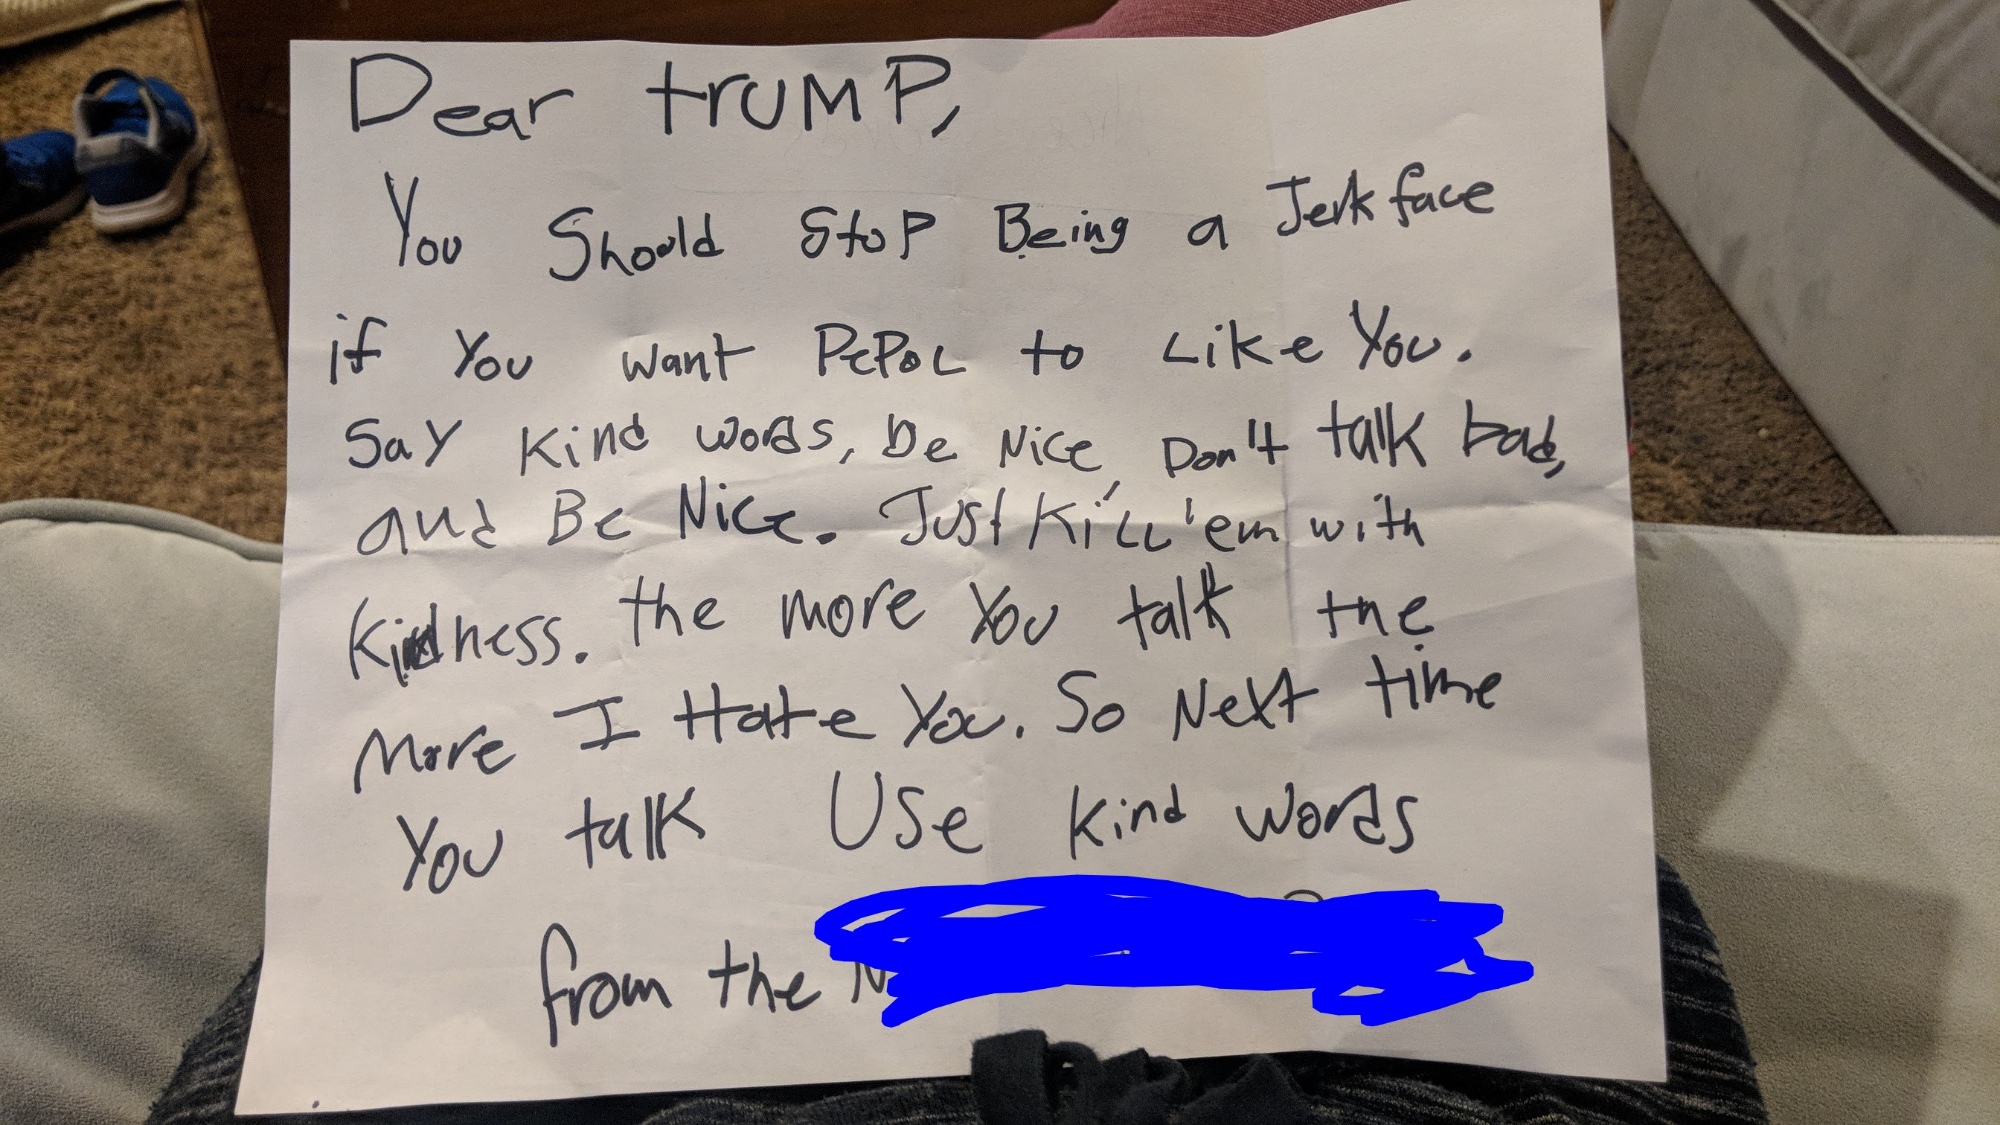 Dear trUMP,
You Should Stop Being a Jerkface
if You want PePoL to Like You.
Say Kind words, be Nice, Don't talk bad,
and Be Nice. Just Kill 'em with
Kindness. the more You talk the
More I Hate You. So Next time
You talk Use kind words
from the